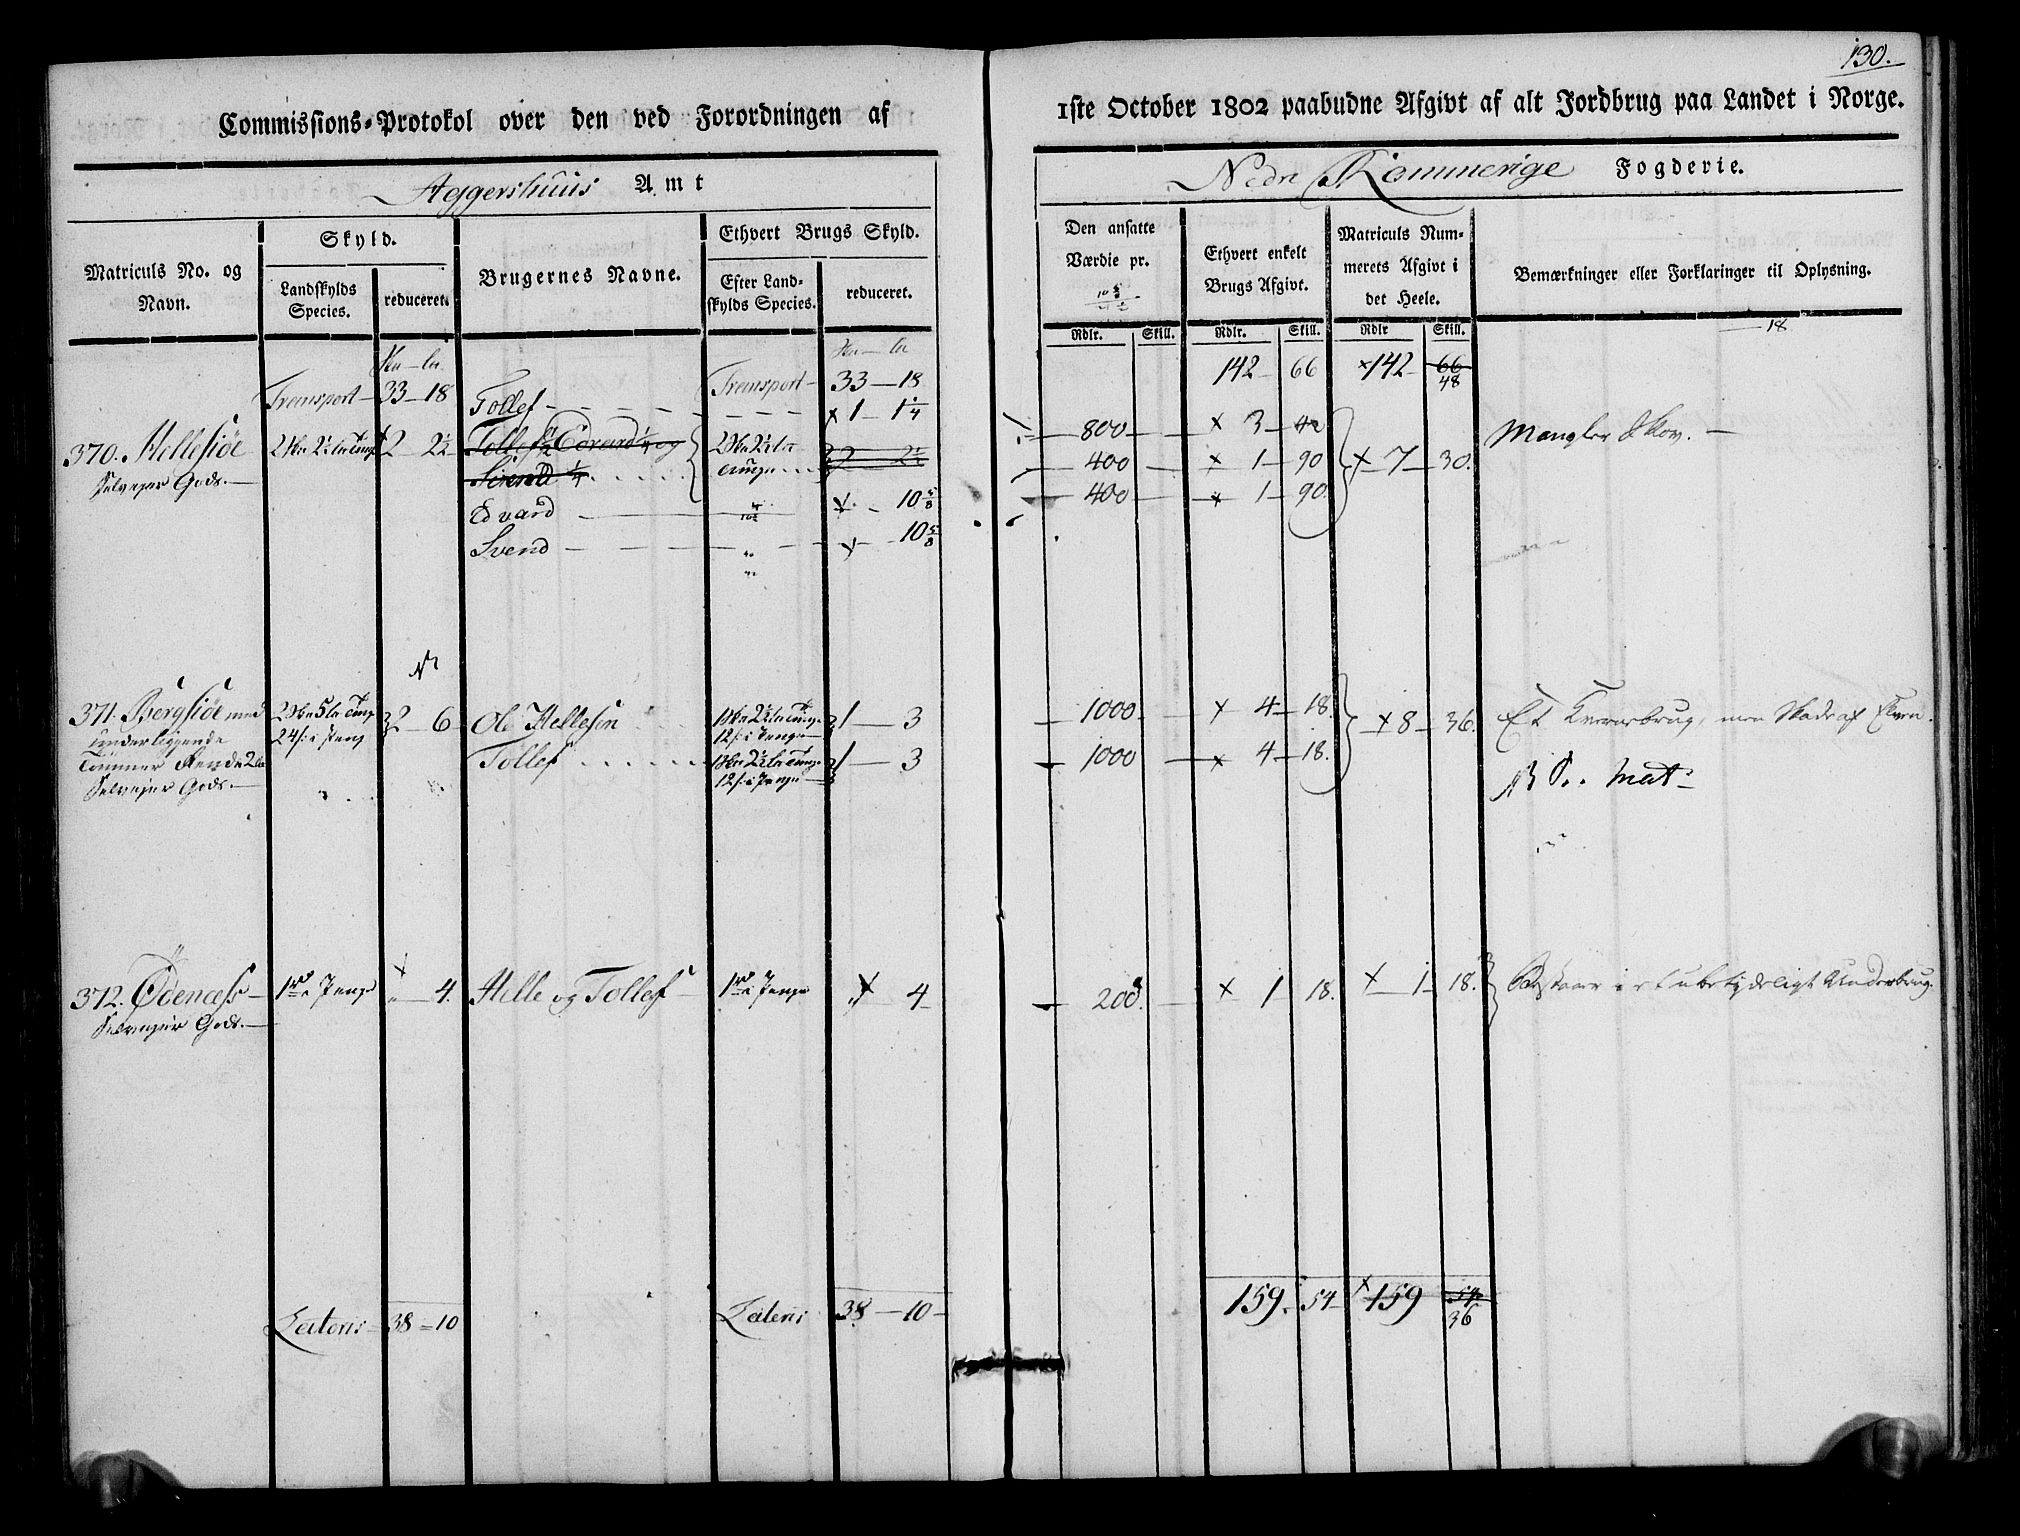 130.
Commissions-Protokol over den ved Forordningen af
1ste October 1802 paabudne Afgivt af alt Jordbrug paa Landet i Norge.
Aggershuus Amt
Nedre Rommerige Fogderie.
Matriculs No. og Navn.
Skyld.
Landskylds Species.
reduceret.
Brugernes Navne.
Ethvert Brugs Skyld.
Efter Landskylds Species.
reduceret.
Den ansatte Værdie pr.
Ethvert enkelt Brugs Afgivt.
Matriculs Nummerets Afgivt i det Heele.
Bemærkninger eller Forklaringer til Oplysning.
Rdlr. Skill. Rdlr. Skill. Rdlr Skill.
18
Transport 33 - 18 Transport - 33 - 18 142 - 66 x 142 - 66
48
Tollef x 1 - 1 1/4 800 x 3 - 42
370. Hellesiøe 2 2 1/2 Tollef 1/2 Edvard 1/4 og 2 2 1/2 400 x 1 - 90 x 7 - 30. Mangler Skov.
Selvejer Gods. Svend 1/4 400 x 1 - 90
Edvard x 10 5/8
Svend x 10 5/8
371. Bergsiøe med 2 - 6 Ole Hellesen 1 - 3 1000 x 4 - 18. x 8 - 36. Et Kvernebrug, men Skade af Elven.
underliggende 24 s: i Penge 12 s: i Penge
Tollef 1 - 3 1000 x 4 - 18.
Selvejer Gods. 12 s: i Penge
372. Ödencess 1 i Penge x 4. Helle og Tollef 1 i Penge x 4 200. x 1 18. x 1 18. Bestaaer i et ubetydeligt Underbrug.
Selvejer Gods.
Lateris 38 - 10 Lateris 38 - 10 159. 54 x 159 54
36